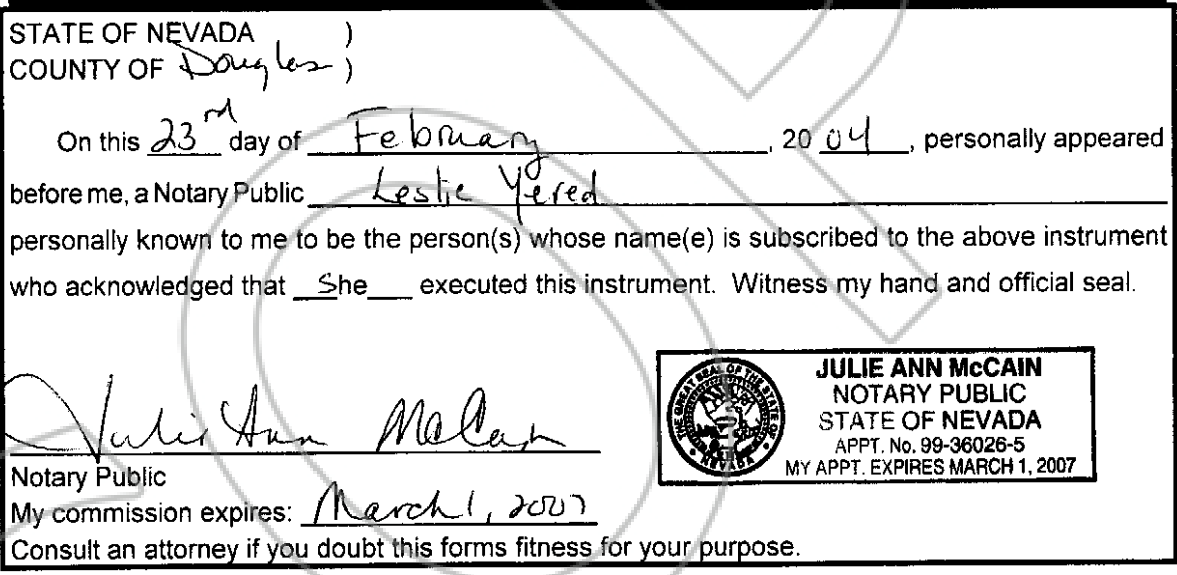 STATE OF NEVADA )
COUNTY OF Douglas )
On this 23rd day of February, 2004, personally appeared
before me, a Notary Public Leslie Yered
personally known to me to be the person(s) whose name(e) is subscribed to the above instrument
who acknowledged that She executed this instrument. Witness my hand and official seal.
Julie Ann McCain
Notary Public
My commission expires: March 1, 2007
Consult an attorney if you doubt this forms fitness for your purpose.
THE GREAT SEAL OF THE STATE OF NEVADA
JULIE ANN McCAIN
NOTARY PUBLIC
STATE OF NEVADA
APPT. No. 99-36026-5
MY APPT. EXPIRES MARCH 1, 2007